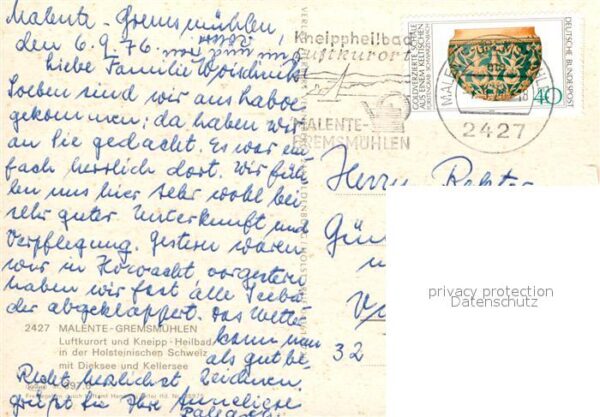 Malente-Gremsmühlen,
den 6.9.76.
liebe Familie Woischnik
Soeben sind wir aus
gekommen; da haben wir
an Sie gedacht. Es war ein
fach herrlich dort. Wir füh
len uns hier sehr wohl bei
sehr guter Unterkunft und
Verpflegung. Gestern waren
wir in Howacht vorgestern
haben wir fast alle Seebä
der abgeklappert. Das Wetter
kann man
als gut be
zeichnen.
Recht herzlichst
grüßt Sie Ihre Anneliese
2427 MALENTE-GREMSMÜHLEN
Luftkurort und Kneipp-Heilbad
in der Holsteinischen Schweiz
mit Dieksee und Kellersee
Kneippheilbad
Luftkurort
MALENTE-
GREMSMÜHLEN
GOLDVERZIERTE SCHALE
AUS EINEM KELTISCHEN
DEUTSCHE BUNDESPOST
40
MALENTE
2427
Herrn Rektor
Gün
32
privacy protection
Datenschutz